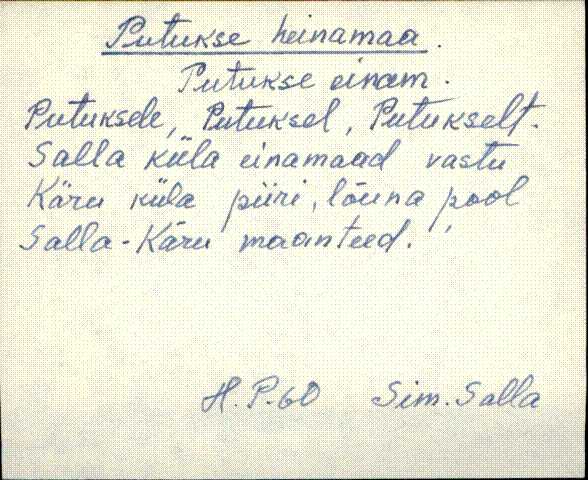 Putukse heinamaa.
Putukse einam.
Putuksele, Putuksel, Putukselt.
Salla küla einamaad vastu
Käru küla piiri, lõuna pool
Salla-Käru maanteed.
H.P.60 Sim. Salla